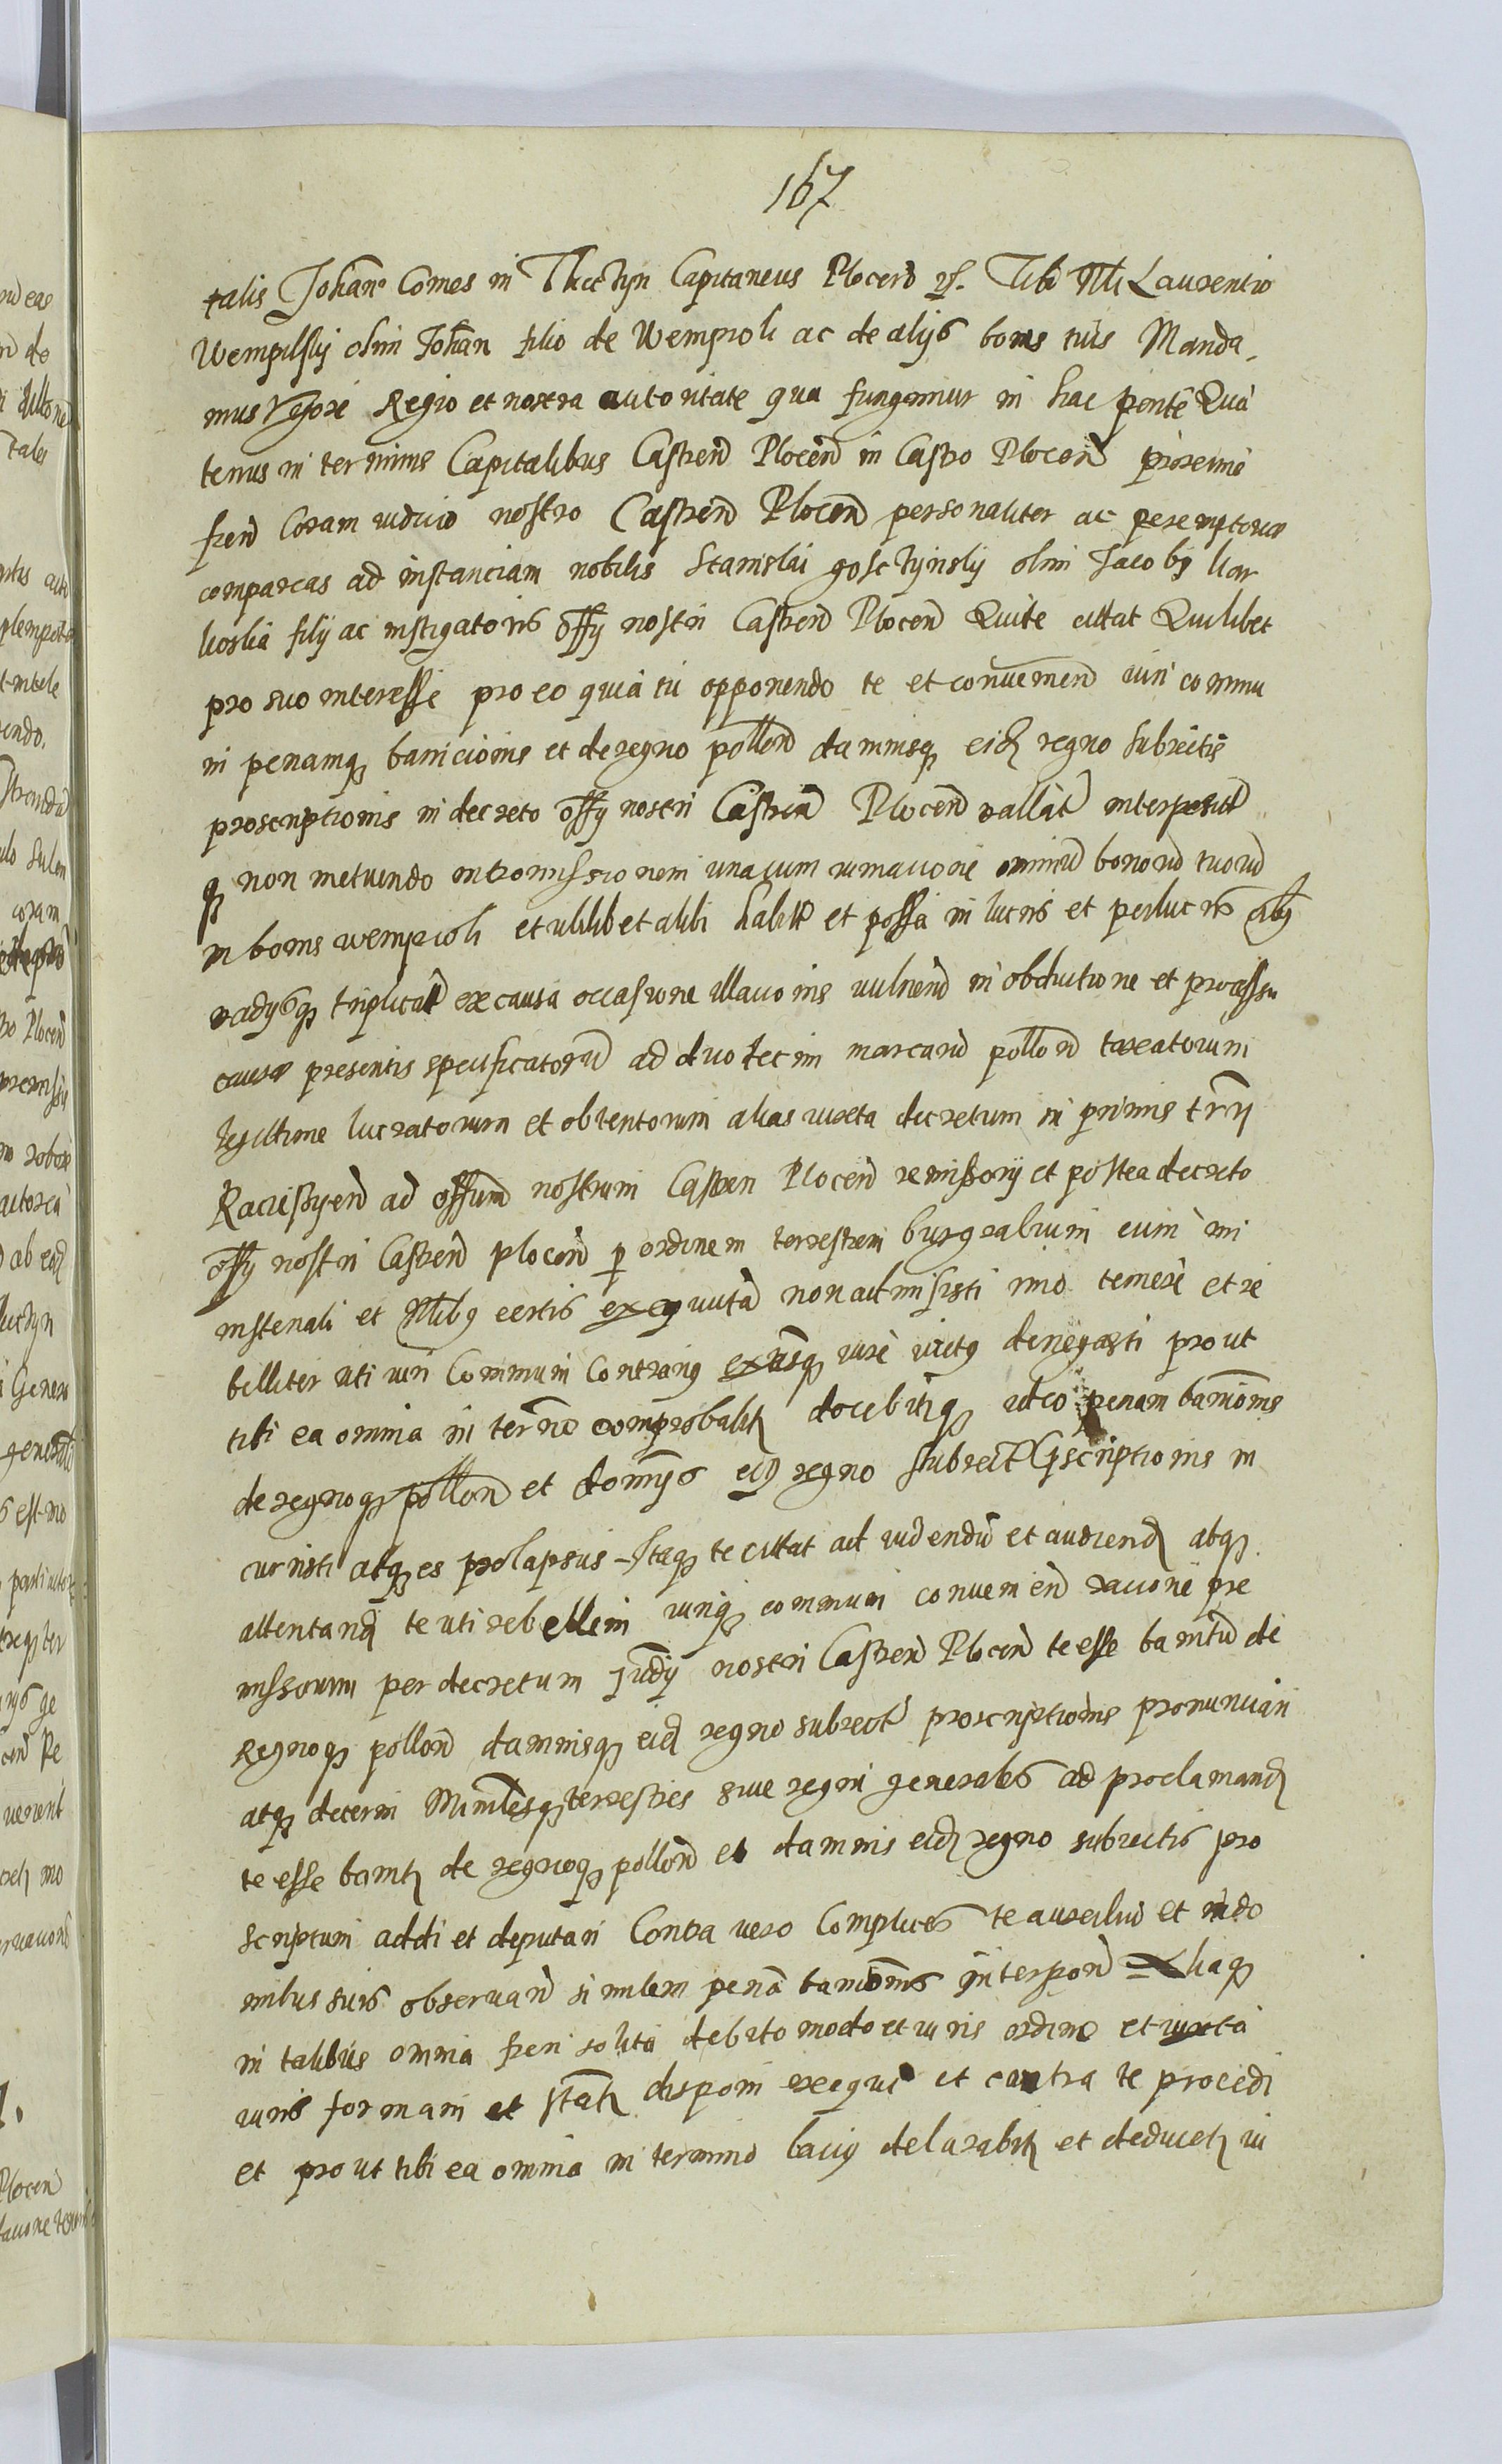 167
talis Johan Comes in Thectyn Capitaneus Plocen Tibi Nbli Laurentio
Wempilsky olim Johan filio de Wempioli ac de alijs bonis tuis Manda
mus Vigore Regio et nostra autoritate qua fungimur in hac parte Qua
tenus in terminis Capitalibus Castren Plocen in Castro Plocen proxime
fien Coram iudicio nostro Castren Plocen personaliter ac peremptorie
compareas ad instanciam nobilis Stanislai olim Jacobi
filij ac instigatoris offij nostri Castren Plocen Qui te citat Quilibet
pro suo interesse pro eo quia tu opponendo te et convenien iuri commu
ni penamq banicionis et de regno pollon damnisq eid regno subiectis
proscriptionis in decreto offij nostri Castren Plocen vallat interposit
q non metuendo intromissionem una cum rumacione omniu bonoru tuoru
in bonis wempioli et ubilibet alibi habit et possa in lucris et perlucris
vadysq triplicat ex causa occasione illacionis vulneru in obductione et processu
cause presentis specificatoru ad duodecim marcaru pollon taxatorum
legittime lucratorum et obtentorum alias iuxta decretum in primis trri
ad offium nostrum Castren Plocen remissorij et postea decreto
offij nostri Castren plocen p ordinem terrestrem burgrabium cum mi
nisteriali et Nlibq certis exequuta non admisisti imo temere et re
belliter uti iuri Communi Contrariq iure victq denegasti prout
tibi ea omnia in termo comprobabit docebitq ideo penam banicionis
de regnoq pollon et domijs eid regno subiect pscriptionis in
curristi atq es prolapsus Itaq te citat ad videndu et audiend atq
attentand te uti rebellem iuriq communi convenien racione pre
missorum per decretum Judij nostri Castren Plocen te esse banitu de
Regnoq pollon damnisq eid regno subiect proscriptionis pronunciari
atq decerni Ministlesq terrestres sive regni generales ad proclamand
te esse banit de regnoq pollon et damnis eid regno subiectis pro
scriptum addi et deputari Contra vero Complices te auxiliu et in do
mibus suis observan similem pena banicionis interpon aliaq
in talibus omnia fieri solita debito modo et iuris ordine et iuxta
iuris formam et stat disponi exequi et contra te procedi
et prout tibi ea omnia in termino laciq delarabit et deducet iu